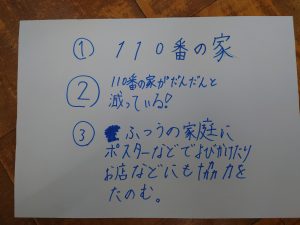 ① 110番の家
② 110番の家がだんだんと
減っている!
③ ふつうの家庭に
ポスターなどでよびかけたり
お店などにも協力を
たのむ。